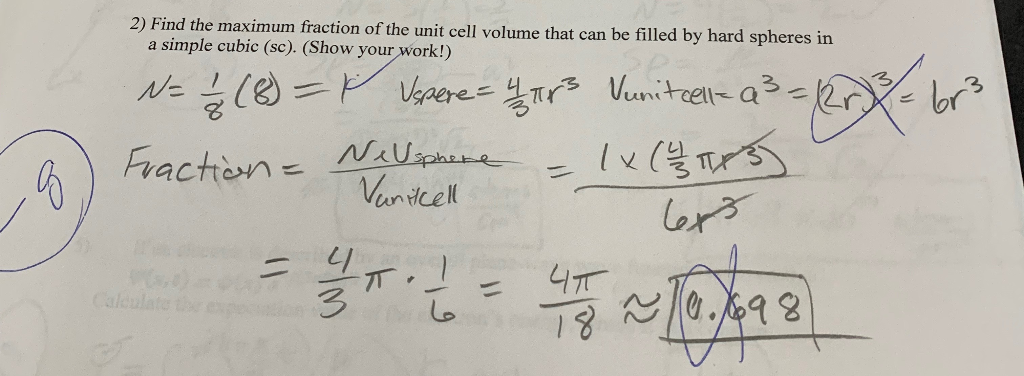 2) Find the maximum fraction of the unit cell volume that can be filled by hard spheres in
a simple cubic (sc). (Show your work!)
N = 1/8 (8) = 1 Vspere = 4/3 πr³ Vunitcell = a³ = (2r)³ = 6r³
Fraction = N x Vsphere / Vunitcell = 1 x (4/3 πr³) / 6r³
= 4/3 π · 1/6 = 4π/18 ≈ 0.698